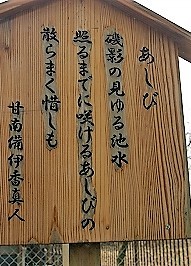 あしび
磯影の見ゆる池水
照るまでに咲けるあしびの
散らまく惜しも
甘南備伊香真人